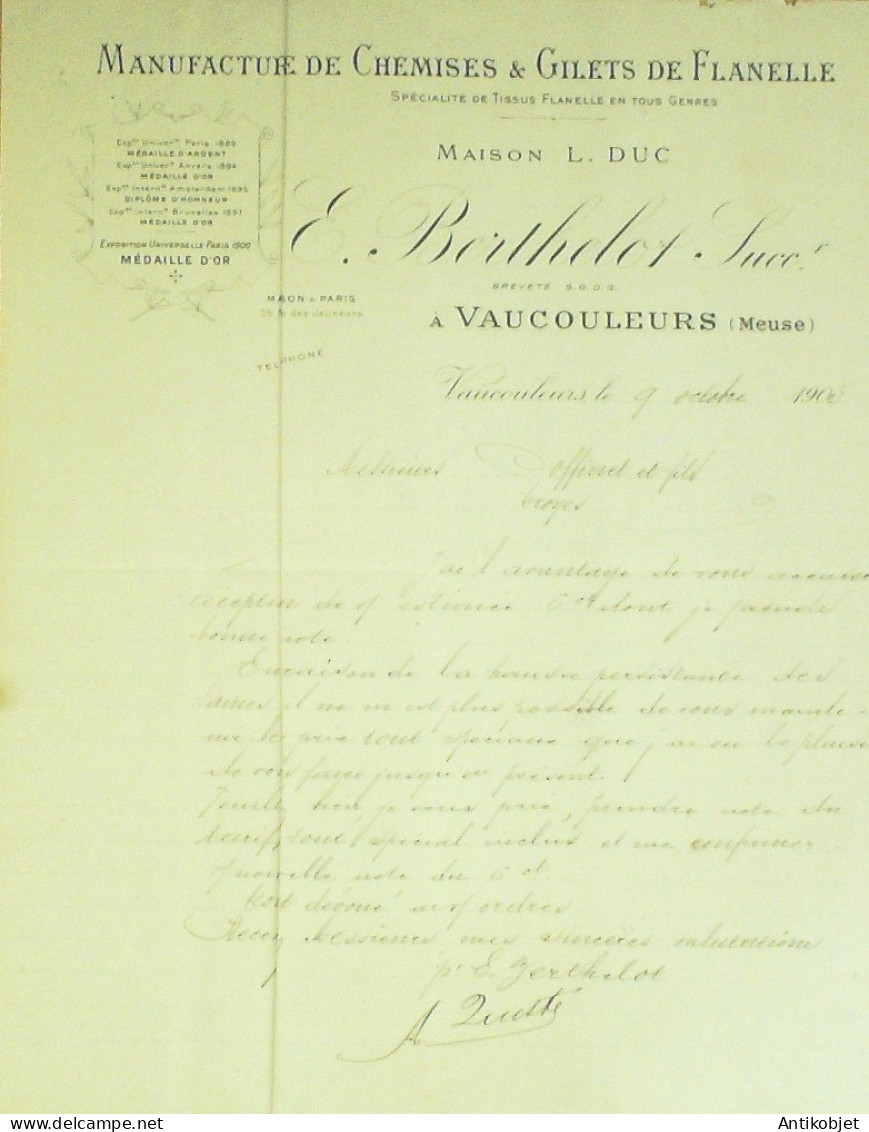 MANUFACTURE DE CHEMISES & GILETS DE FLANELLE
SPÉCIALITÉ DE TISSUS FLANELLE EN TOUS GENRES
Expon Univerle Paris 1889
MÉDAILLE D'ARGENT
Expon Univerle Anvers 1894
MÉDAILLE D'OR
Expon Interle Amsterdam 1895
DIPLÔME D'HONNEUR
Expon Interle Bruxelles 1897
MÉDAILLE D'OR
EXPOSITION UNIVERSELLE PARIS 1900
MÉDAILLE D'OR
MAISON L. DUC
E. Berthelot Succr
BREVETÉ S.G.D.G.
MAISON à PARIS
35, R. des Jeûneurs
À VAUCOULEURS (Meuse)
TÉLÉPHONE
Vaucouleurs le 9 octobre 190
Messieurs Doffinet et fils
Troyes
J'ai l'avantage de vous accuser
reception de v/ estimée 6 ct dont je prends
bonne note
En raison de la hausse persistante des
laines il ne m'est plus possible de vous mainte-
nir les prix tout speciaux que j'ai eu le plaisir
de vous faire jusqu'à présent.
Veuillez bien, je vous prie, prendre note du
tarif tout special inclus et me confirmer
v/ nouvelle note du 6 ct
Tout dévoué à v/ ordres
Recevez Messieurs mes sincères salutations
pr E. Berthelot
Antikobjet